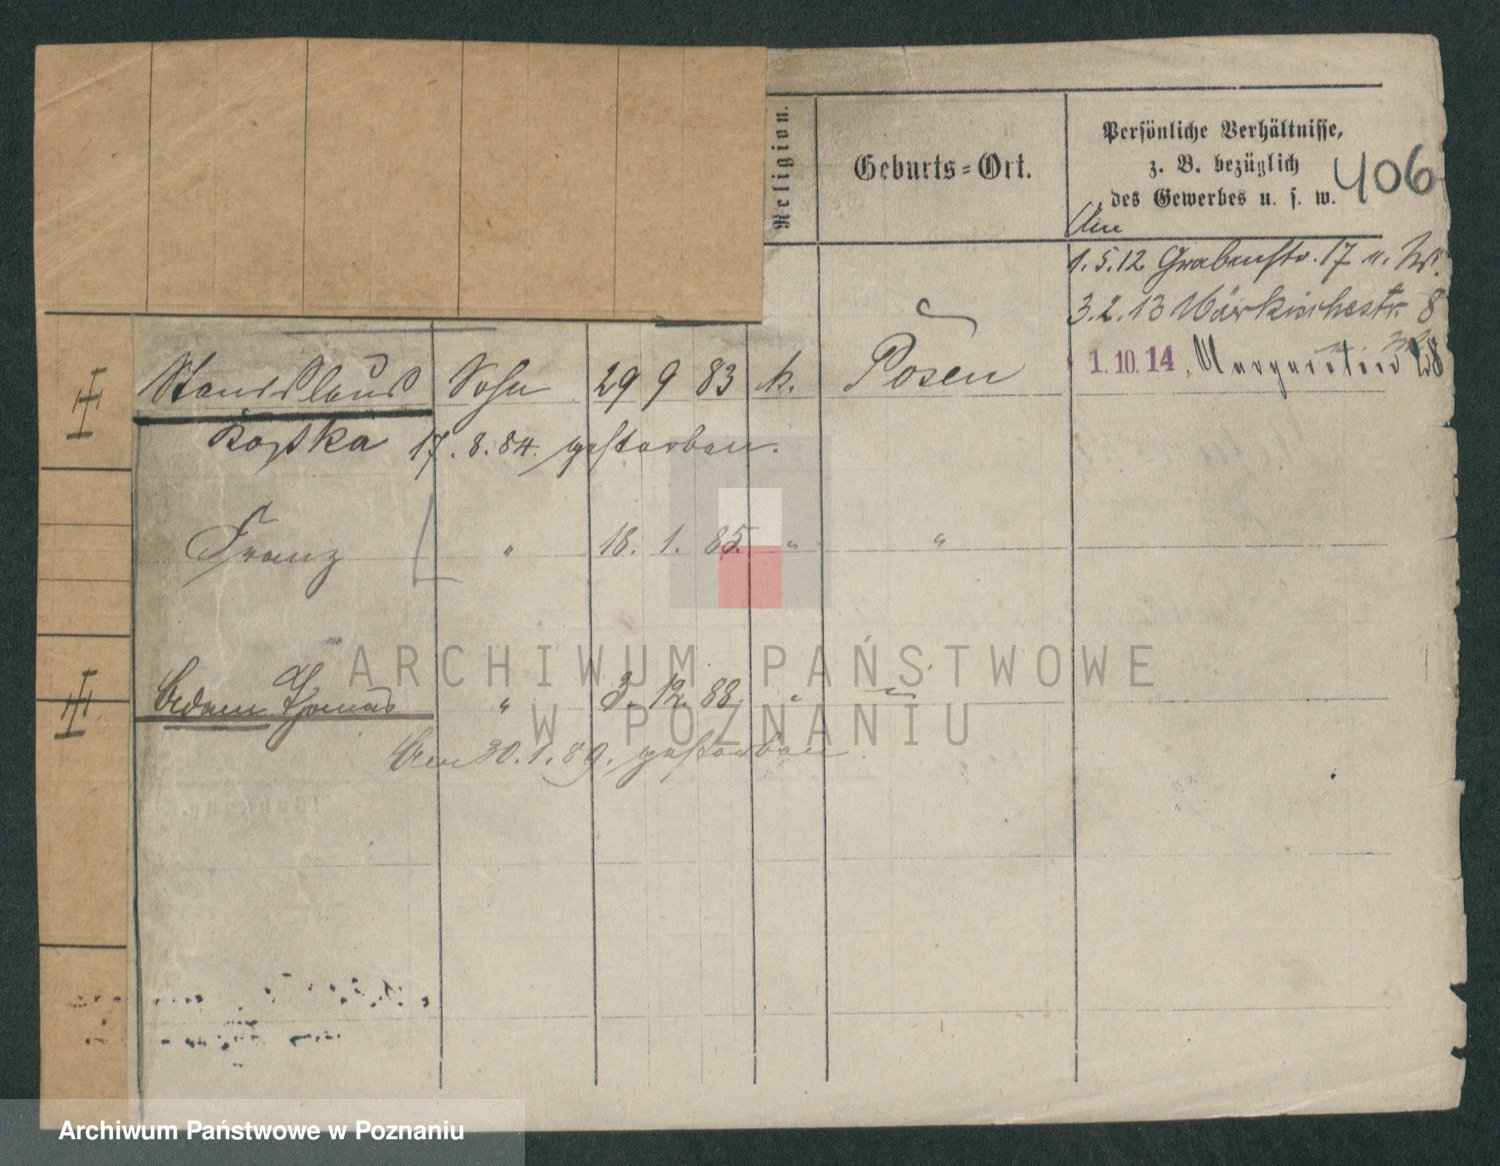 Religion.
Geburts=Ort.
Persönliche Verhältnisse,
z. B. bezüglich
des Gewerbes u. s. w.
406
Am
1.5.12 Grabenstr. 17 u. W.
3.2.13 Märkischestr. 8
1.10.14. Margareten 28
Stanislaus Sohn 29 9 83 k. Posen
Kostka 17.8.84. gestorben.
Franz " 18. 1. 85. " "
Adam Thomas " 3. 12. 88. " "
Am 30.1.89. gestorben.
ARCHIWUM PAŃSTWOWE
W POZNANIU
Archiwum Państwowe w Poznaniu